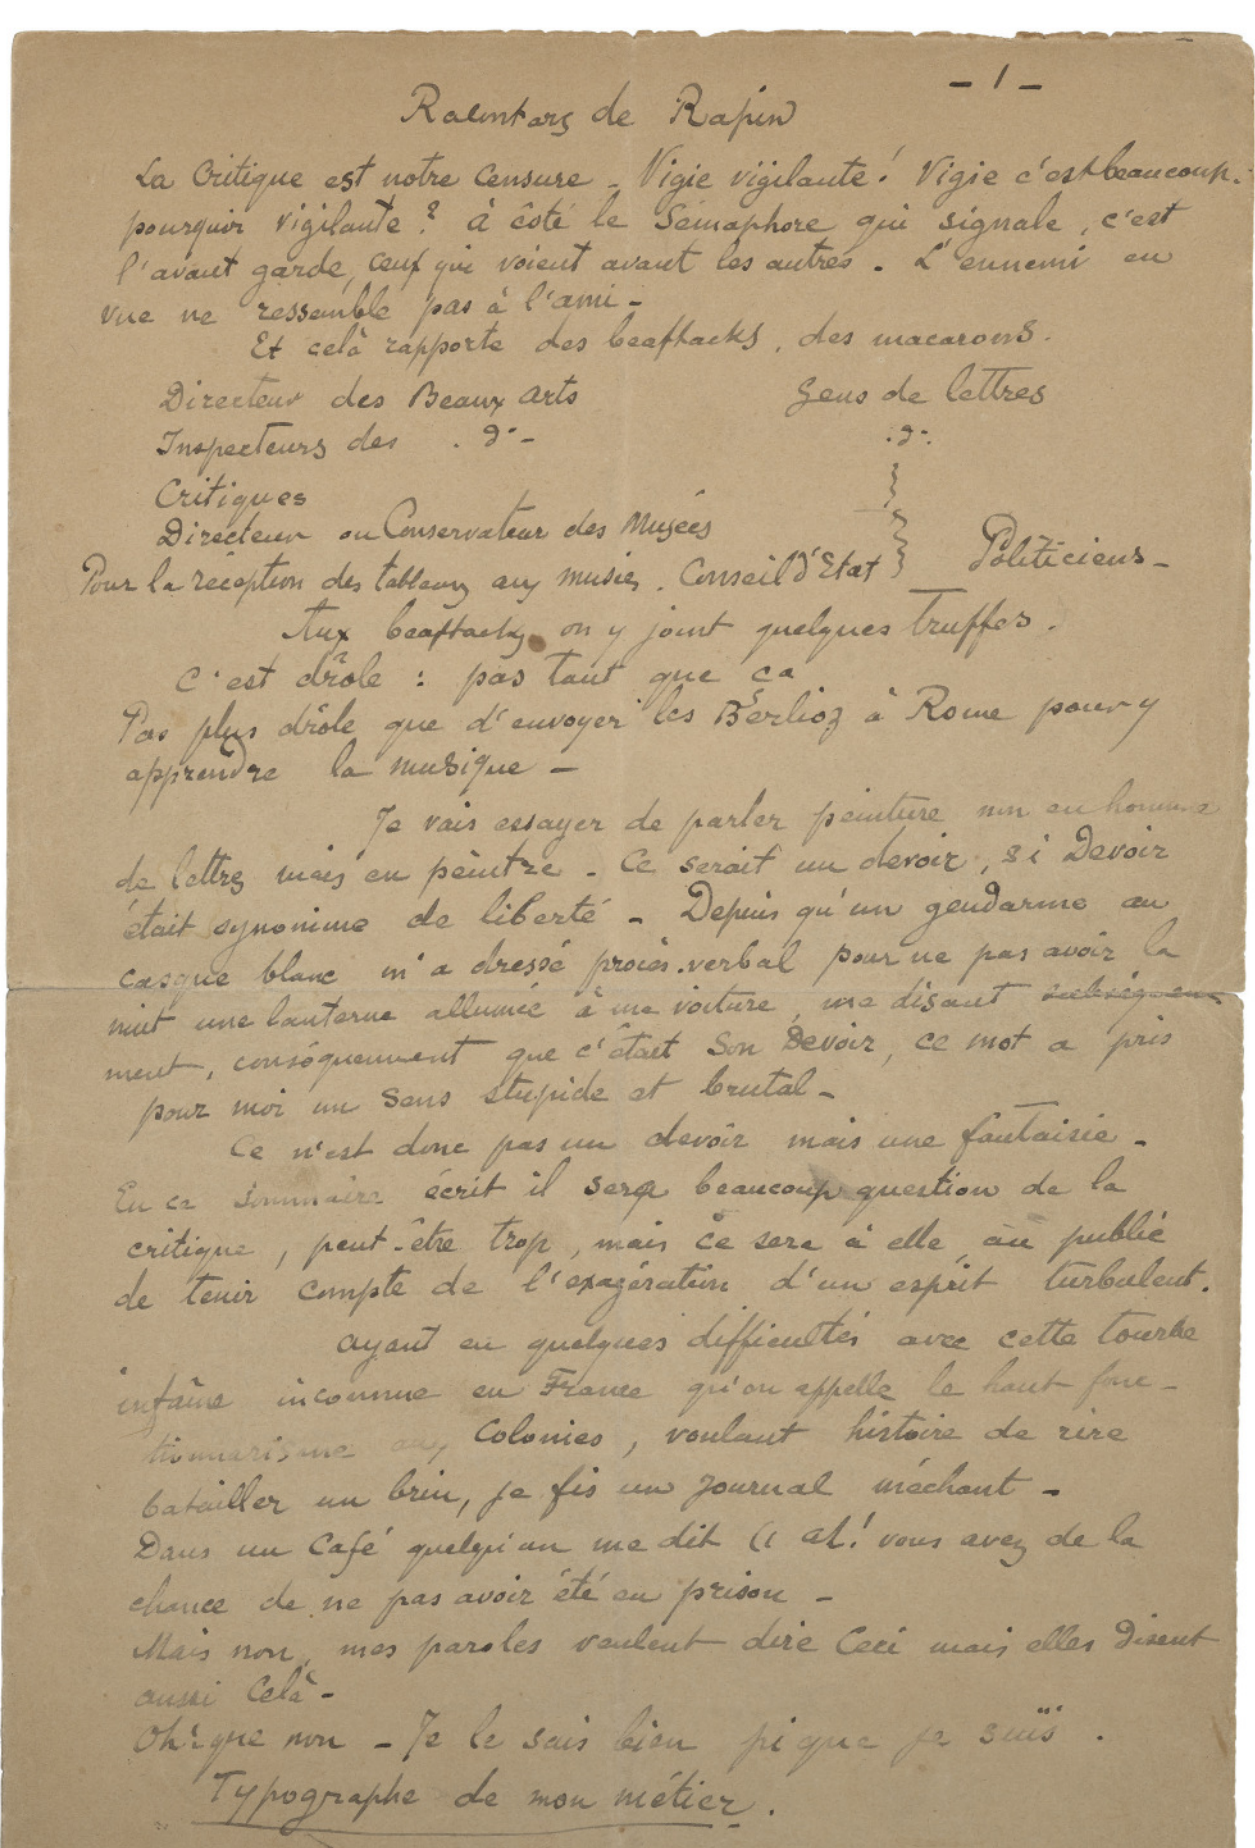 - 1 -
Racontars de Rapin
La Critique est notre censure - Vigie vigilante! Vigie c'est beaucoup.
pourquoi vigilante? à côté le Sémaphore qui signale, c'est
l'avant garde, ceux qui voient avant les autres. L'ennemi en
vue ne ressemble pas à l'ami -
Et celà rapporte des beaftacks, des macarons.
Directeur des Beaux Arts Gens de lettres
Inspecteurs des . d° - . d° .
Critiques
Directeur ou Conservateur des Musées
Pour la réception des tableaux aux musées. Conseil d'Etat } Politiciens -
Aux beaftacks on y joint quelques truffes.
C'est drôle : pas tant que ça
Pas plus drôle que d'envoyer les Berlioz à Rome pour y
apprendre la musique -
Je vais essayer de parler peinture non en homme
de lettres mais en peintre - Ce serait un devoir, si Devoir
était synonime de liberté - Depuis qu'un gendarme au
casque blanc m'a dressé procès-verbal pour ne pas avoir la
nuit une lanterne allumée à ma voiture, me disant subséquem
ment, conséquemment que c'était Son Devoir, ce mot a pris
pour moi un sens stupide et brutal -
Ce n'est donc pas un devoir mais une fantaisie -
En ce sommaire écrit il sera beaucoup question de la
critique, peut-être trop, mais ce sera à elle, au public
de tenir compte de l'exagération d'un esprit turbulent.
Ayant eu quelques difficultés avec cette tourbe
infâme inconnue en France qu'on appelle le haut fonc-
tionnarisme aux Colonies, voulant histoire de rire
batailler un brin, je fis un journal méchant -
Dans un Café quelqu'un me dit (( ah! vous avez de la
chance de ne pas avoir été en prison -
Mais non, mes paroles veulent dire Ceci mais elles disent
aussi Celà -
Oh! que non - Je le sais bien pi que je suis .
Typographe de mon métier.